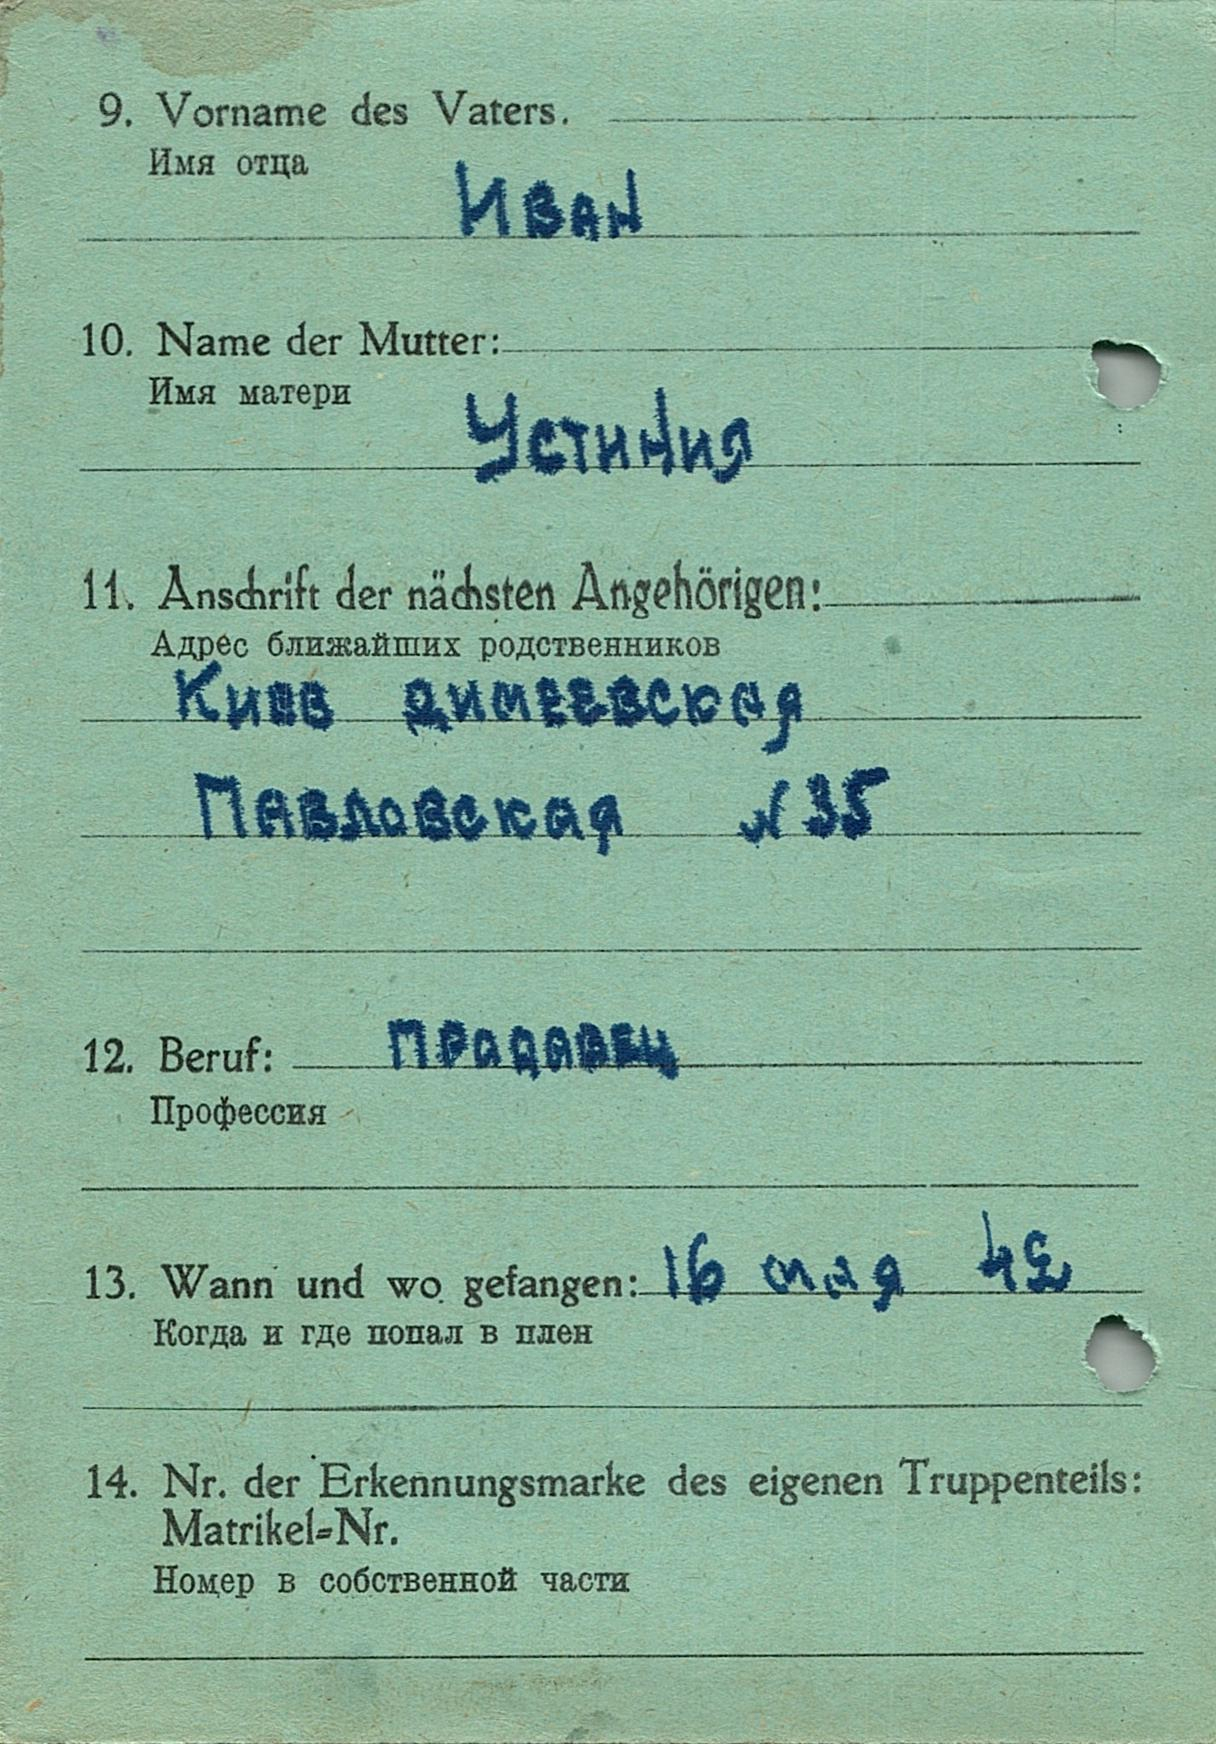 9. Vorname des Vaters.
Имя отца
Иван
10. Name der Mutter:
Имя матери
Устиния
11. Anschrift der nächsten Angehörigen:
Адрес ближайших родственников
Киев димеевская
Павловская N 35
12. Beruf: прадавец
Профессия
13. Wann und wo gefangen: 16 мая 42
Когда и где попал в плен
14. Nr. der Erkennungsmarke des eigenen Truppenteils:
Matrikel=Nr.
Номер в собственной части